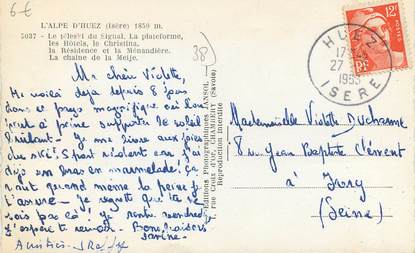 6€
L'ALPE D'HUEZ (Isère) 1850 m.
5037 - Le téleski du Signal, La plateforme,
les Hôtels, le Christina,
la Résidence et la Ménandière.
La chaîne de la Meije.
38
Ma chère Violette,
Me voilà déjà depuis 8 jours
dans ce pays magnifique où l'on
peut à peine supporter le soleil
brûlant. Je me livre aux joies
du ski! Sport violent car j'ai
déjà un bras en marmelade! Ça
vaut quand même la peine je
t'assure. Je regrette que tu ne
sois pas là! je rentre vendredi
j'espère te revoir. Bons baisers
Janine
Editions Photographiques JANSOL
rue Croix d'Or, CHAMBERY (Savoie)
Reproduction interdite
HUEZ
17
27
1955
ISERE
12F
Mademoiselle Violette Ducharme
8 rue Jean Baptiste Clément
à Ivry
(Seine)